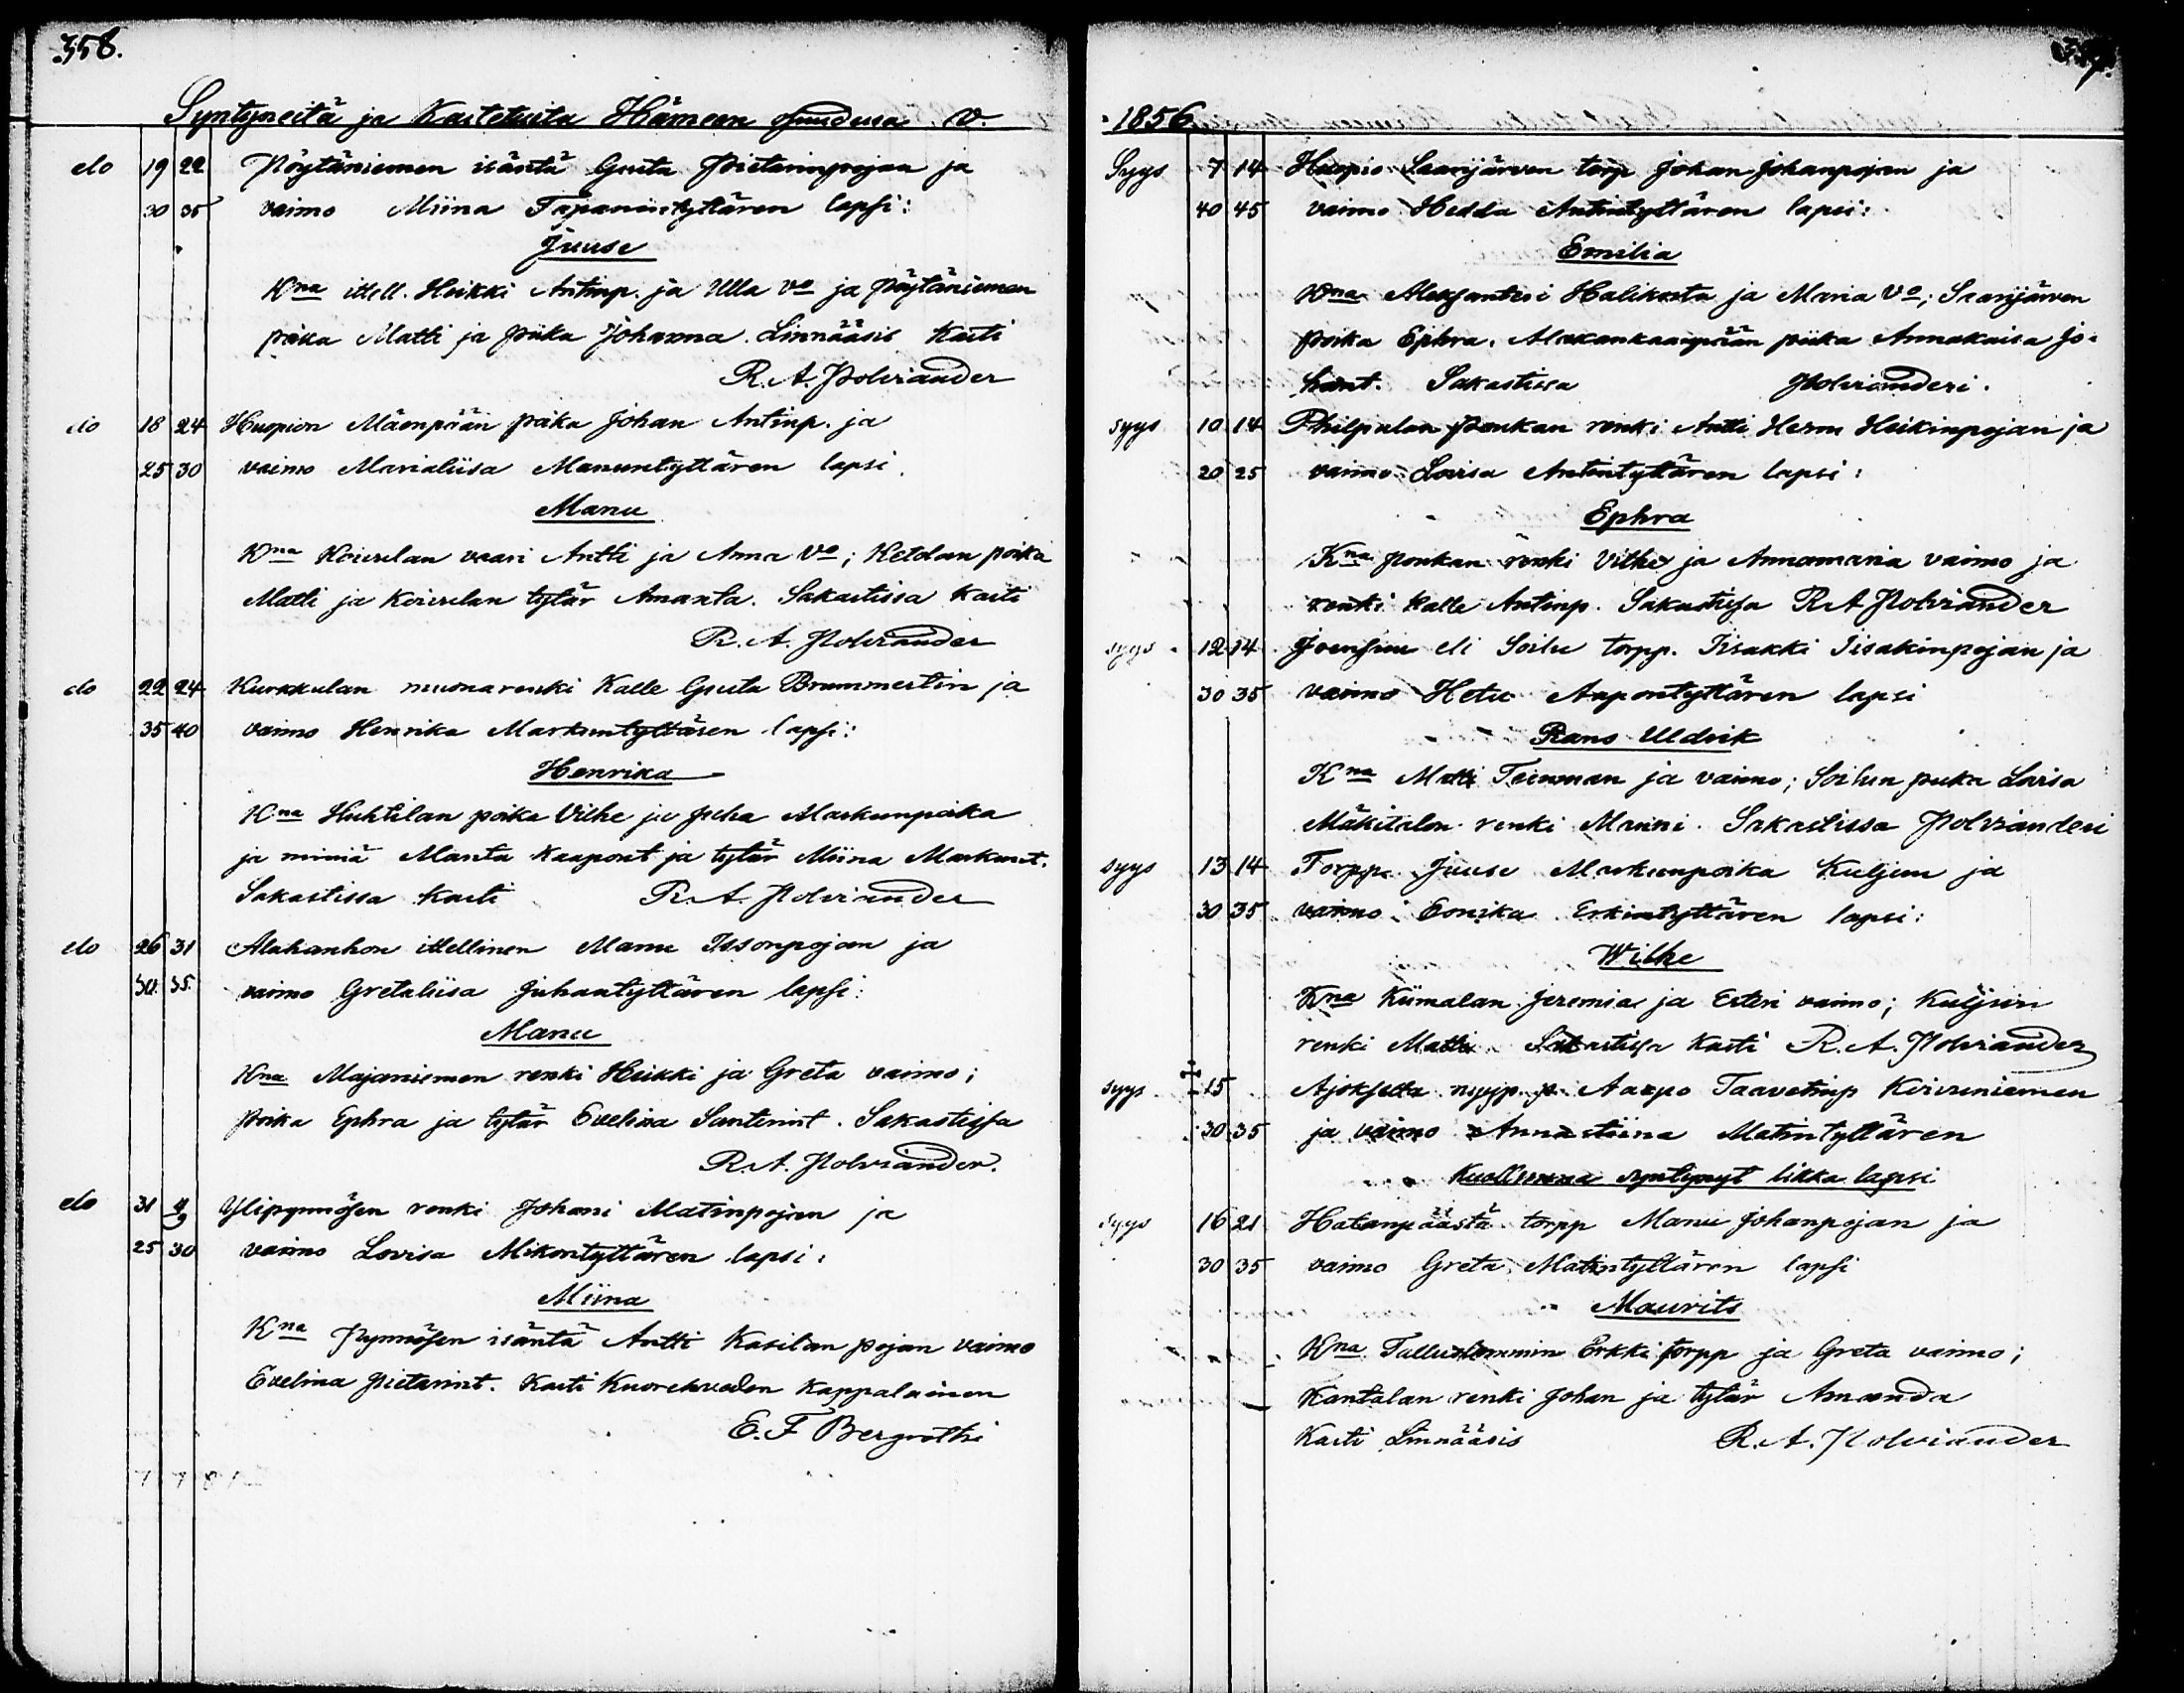 358.
Syntyneitä ja Kastetuita Hämeen puodessa v.
elo 19 22 Pöytäniemen isäntä Gusta Pietarinpojan ja
30 35 vaimo Miina Tapanintyttären lapsi:
Juuse
Kna itell. Heikki Antinp. ja Ulla vo ja Pöytäniemen
poika Matti ja piika Johanna. Linnääsis Kasti
R. A. Polviander
elo 18 24 Huopion Mäenpään poika Johan Antinp. ja
25 30 vaimo Marialiisa Manuntyttären lapsi.
Manu
Kna Koivulan vaari Antti ja Anna Vo; Ketolan poika
Matti ja Koivulan tytär Amanta. Sakastissa Kasti
R. A. Polviander
elo 22 24 Kurkkulan muonarenki Kalle Gusta Brummertin ja
35 40 vaimo Henrika Markuntyttären lapsi:
Henrika
Kna Huhtilan poika Vilhe ja Juha Markunpoika
ja miniä Manta Kaapont ja tytär Miina Markunt.
Sakastissa Kasti R. A. Polviander
elo 26 31 Alahanhon itellinen Manu Issonpojan ja
30. 35. vaimo Gretaliisa Juhantyttären lapsi:
Manu
Kna Majaniemen renki Heikki ja Greta vaimo;
poika Ephra ja tytär Evelina Santerint. Sakastissa
R. A. Polviander.
elo 31 Ylipynnösen renki Johani Matinpojan ja
25 30 vaimo Lovisa Mikontyttären lapsi:
Miina
Kna Pynnösen isäntä Antti Kasilan pojan vaimo
Evelina Pietarint. Kasti Kuoreveden Kappalainen
E. F Bergrothi
1856
Syys 7 14 Huopio Saarijärven torp Johan Johanpojan ja
40 45 vaimo Hedda Antintyttären lapsi:
Emilia
Kna Aleksantesi Halikosta ja Maria Vo; Saarijärven
poika Ephra. piika Annakaisa Jo-
hant. Sakastissa Polvianderi.
syys 10 14 Philpulan Poukan renki Antti Herm Heikinpojan ja
20 25 vaimo Lovisa Antintyttären lapsi:
Ephra
Kna Poukan renki Vilhe ja Annamaria vaimo ja
renki Kalle Antinp. Sakastissa R A Polviander
syys 12 14 Joensuu eli Soilu torpp. Iisakki Iisakinpojan ja
30 35 vaimo Hetu Aapontyttären lapsi
Rans Uldrik
Kna Matti Teinman ja vaimo; Soilun piika Lovisa
Mäkitalon renki Manni. Sakastissa Polvianderi
syys 13 14 Torpp. Juuse Markunpoika Kuljun ja
30 35 vaimo Eonika Erkintyttären lapsi:
Wilhe
Kna Kiimalan Jeremias ja Esteri vaimo; Kuljun
renki Matti Sakastissa Kasti R. A. Polviander
syys 15 Ajoksella nypp. Aapo Taavetinp Koivuniemen
30 35 ja vaimo Annastiina Matintyttären
Kuolleena syntynyt likka lapsi
syys 16 21 Hatanpäästä torpp Manu Johanpojan ja
30 35 vaimo Greta Matintyttären lapsi
Maurits
Kna Erkki torpp ja Greta vaimo;
Kantalan renki Johan ja tytär Amanda
Kasti Linnääsis R. A. Polviander